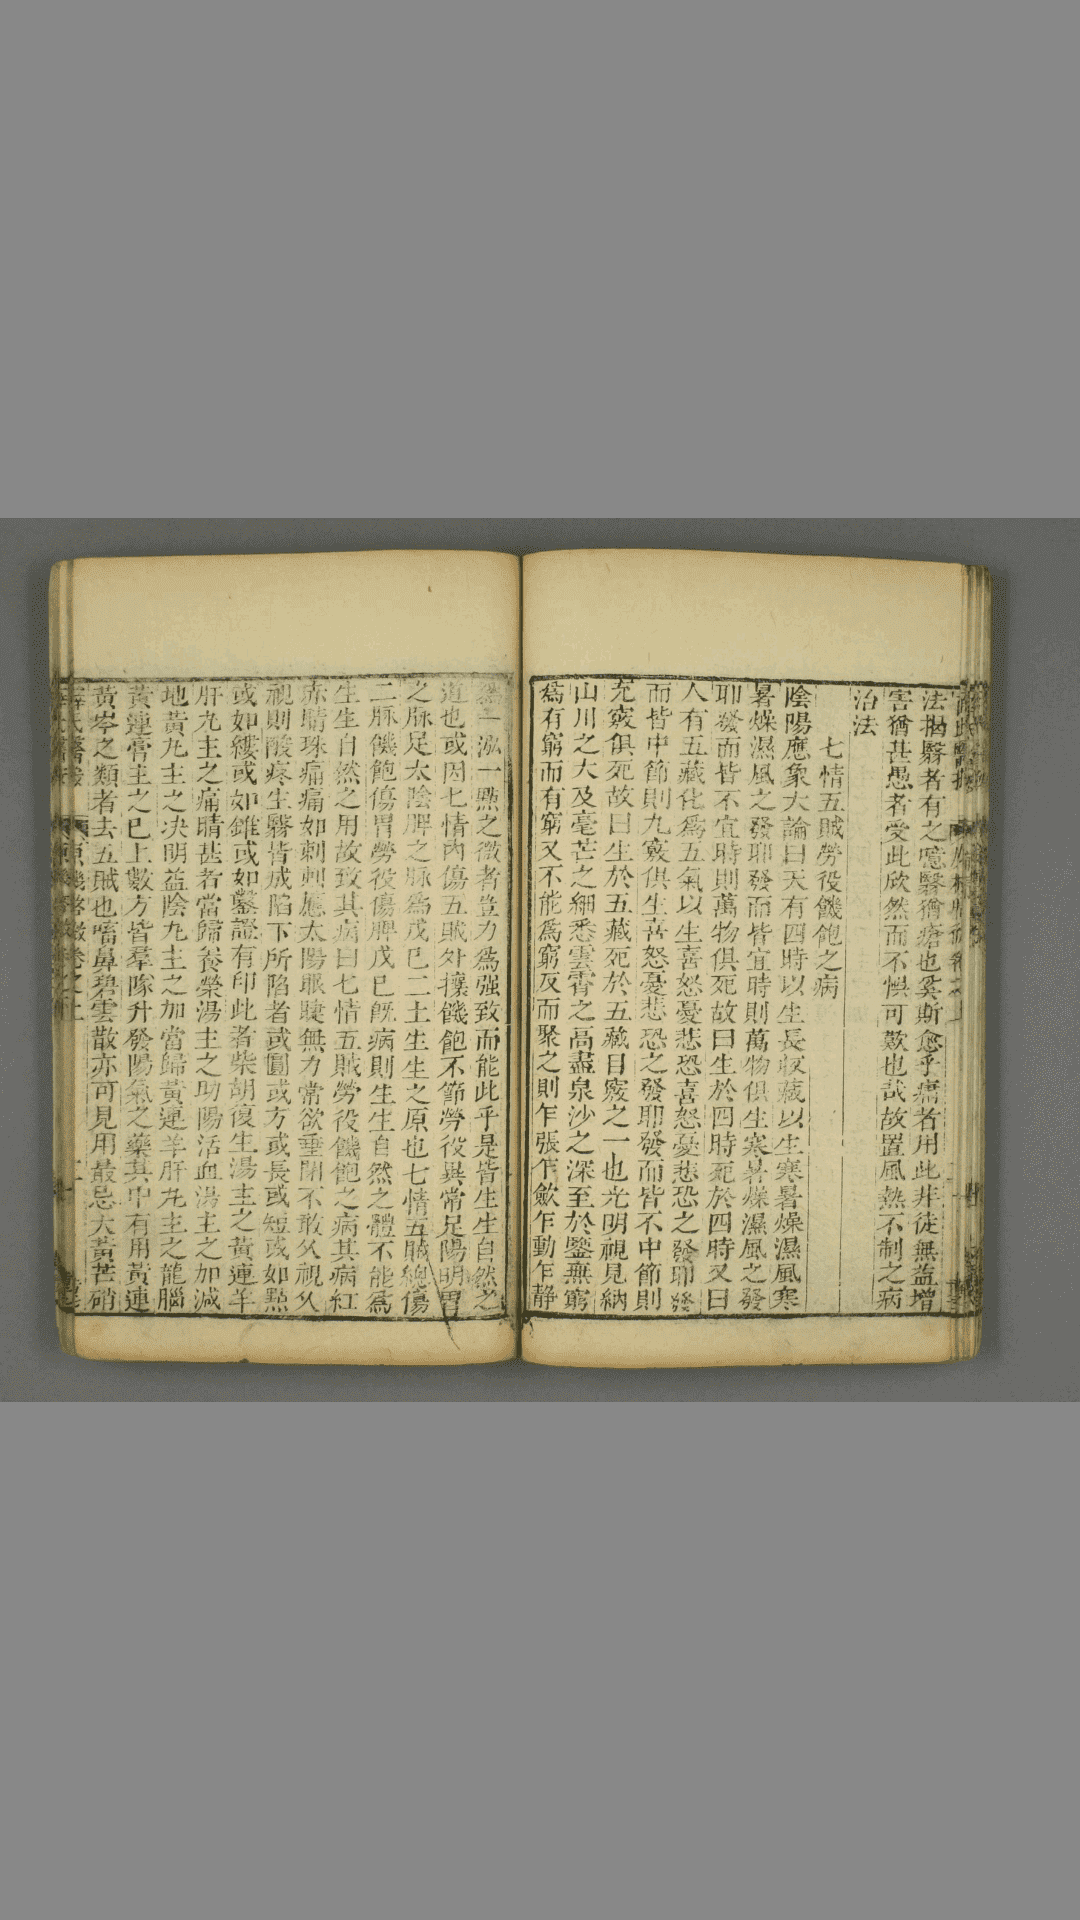 法揭醫者有之噫醫猶瘡也奚斯愈乎痛者用此非徒無益增
害猶甚愚者受此欣然而不惧可歎也哉故置風熱不制之病
治法
七情五賊勞役饑飽之病
陰陽應象大論曰天有四時以生長収藏以生寒暑燥濕風寒
暑燥濕風之發耶發而皆宜時則萬物俱生寒暑燥濕風之發
耶發而皆不宜時則萬物俱死故曰生於四時死於四時又曰
人有五藏化為五氣以生喜怒憂悲恐喜怒憂悲恐之發耶發
而皆中節則九竅俱生喜怒憂悲恐之發耶發而皆不中節則
九竅俱死故曰生於五藏死於五藏目竅之一也光明視見納
山川之大及毫芒之細悉雲霄之高盡泉沙之深至於鑒無窮
為有窮而有窮又不能為窮反而聚之則乍張乍歛乍動乍静
為一泓一㸃之微者豈力為强致而能此乎是皆生生自然之
道也或因七情内傷五賊外攘饑飽不節勞役異常足陽明胃
之脉足太陰脾之脉為戊巳二土生生之原也七情五賊總傷
二脉饑飽傷胃勞役傷脾戊巳旣病則生生自然之體不能為
生生自然之用故致其病曰七情五賊勞役饑飽之病其病紅
赤睛珠痛痛如刺刺應太陽眼睫無力常欲垂閉不敢久視久
視則酸疼生翳皆成陷下所陷者或圓或方或長或短或如㸃
或如縷或如錐或如鑿證有印此者柴胡復生湯主之黃連羊
肝丸主之痛睛甚者當歸養榮湯主之助陽活血湯主之加減
地黃丸主之决明益陰丸主之加當歸黃連羊肝丸主之龍腦
黃連膏主之巳上數方皆羣隊升發陽氣之藥其中有用黃連
黃岑之類者去五賊也嗃鼻碧雲散亦可見用最忌大黃芒硝
薛氏醫案 原機啓微卷之上